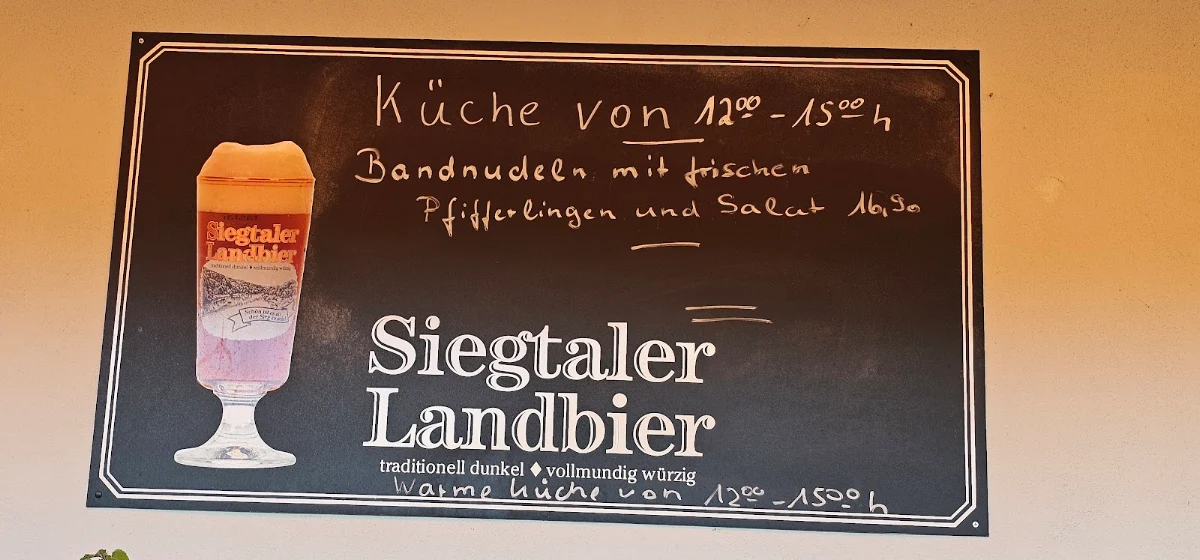 Küche von 12⁰⁰ - 15⁰⁰ h
Bandnudeln mit frischen
Pfifferlingen und Salat 16,90
Siegtaler
Landbier
traditionell dunkel ♦ vollmundig würzig
Siegtaler
Landbier
traditionell dunkel ♦ vollmundig würzig
Warme Küche von 12⁰⁰ - 15⁰⁰ h